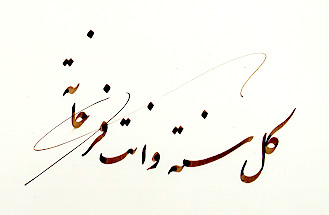 كل سنة وأنت فرحانة